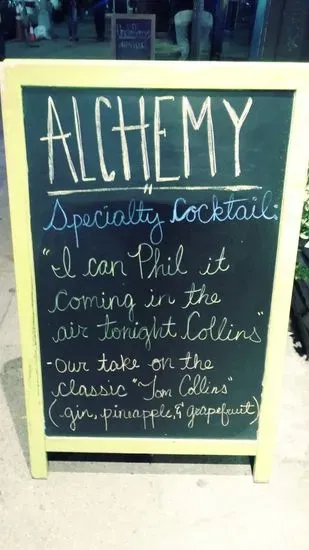 ALCHEMY
"
Specialty Cocktail:
"I can Phil it
coming in the
air tonight Collins"
-our take on the
classic "Tom Collins"
(-gin, pineapple, & grapefruit)